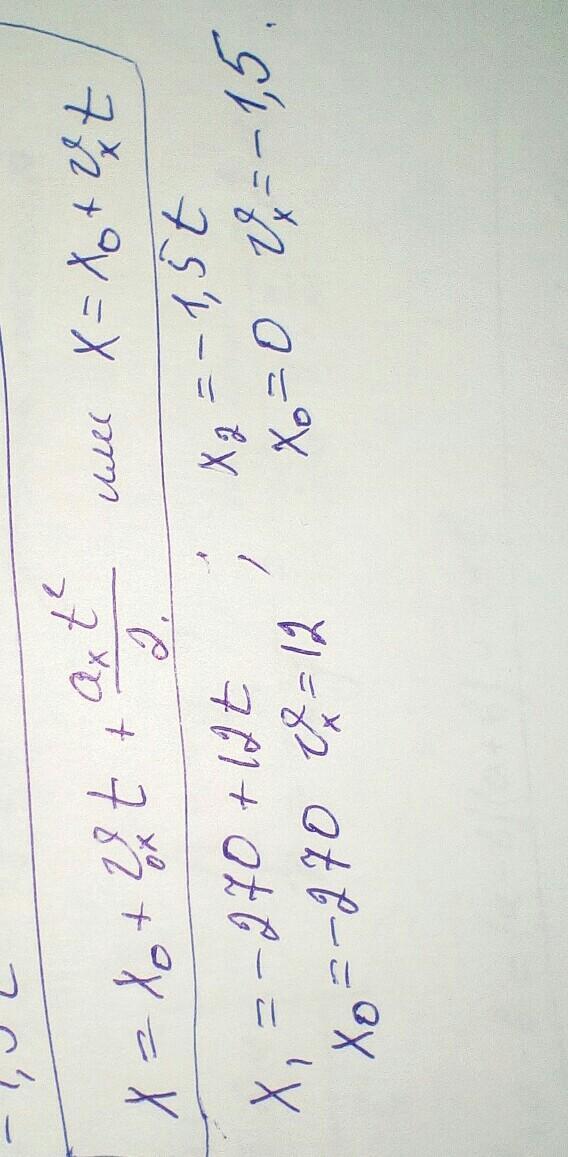 -1,5t
x = x₀ + υ₀ₓt + aₓt²/2. или x = x₀ + υₓt
x₁ = -270 + 12t ; x₂ = -1,5t
x₀ = -270 υₓ = 12 , x₀ = 0 υₓ = -1,5.